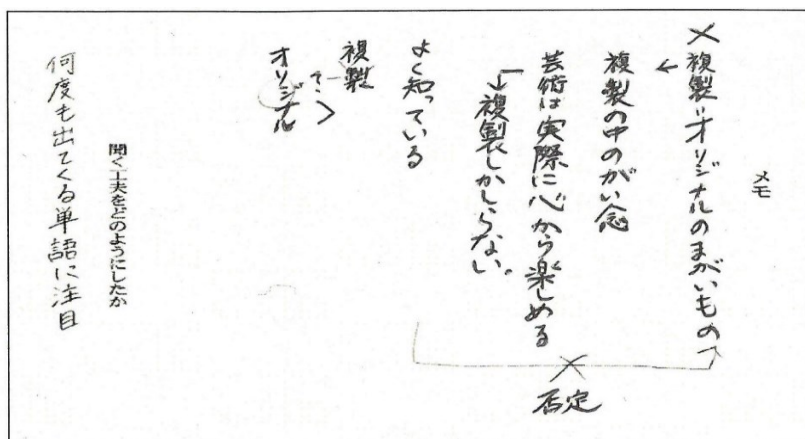 メモ
×複製=オリジナルのまがいもの
←
複製の中のがい念
芸術は実際に心から楽しめる
→複製しかしらない。
よく知っている
複製
オリジナル
×
否定
聞く工夫をどのようにしたか
何度も出てくる単語に注目